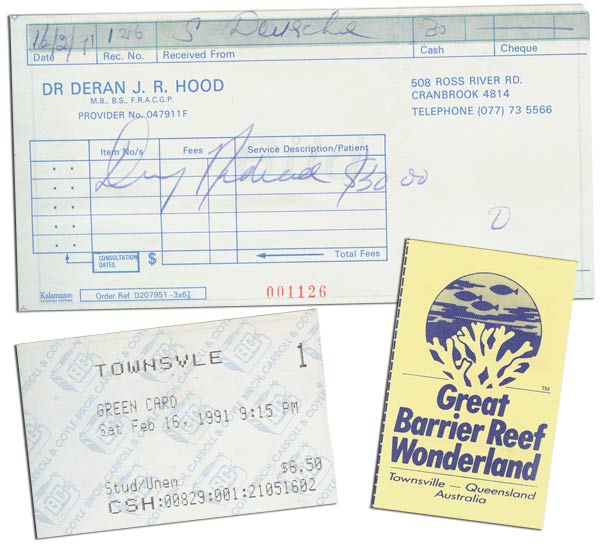 16/2/91 126 S Deusche 30
Date Rec. No. Received From Cash Cheque
DR DERAN J. R. HOOD
M.B., B.S., F.R.A.C.G.P.
PROVIDER No. 047911F
508 ROSS RIVER RD.
CRANBROOK 4814
TELEPHONE (077) 73 5566
Item No/s Fees Service Description/Patient
$30 00
CONSULTATION DATES. $ Total Fees
Kalamazoo
Order Ref. D207951 -3x6¾
001126
TOWNSVLE 1
GREEN CARD
Sat Feb 16, 1991 9:15 PM
$6.50
Stud/Unem
CSH:00829:001:21051602
BIRCH, CARROLL & COYLE
BCC
Great
Barrier Reef
Wonderland
TM
Townsville — Queensland
Australia